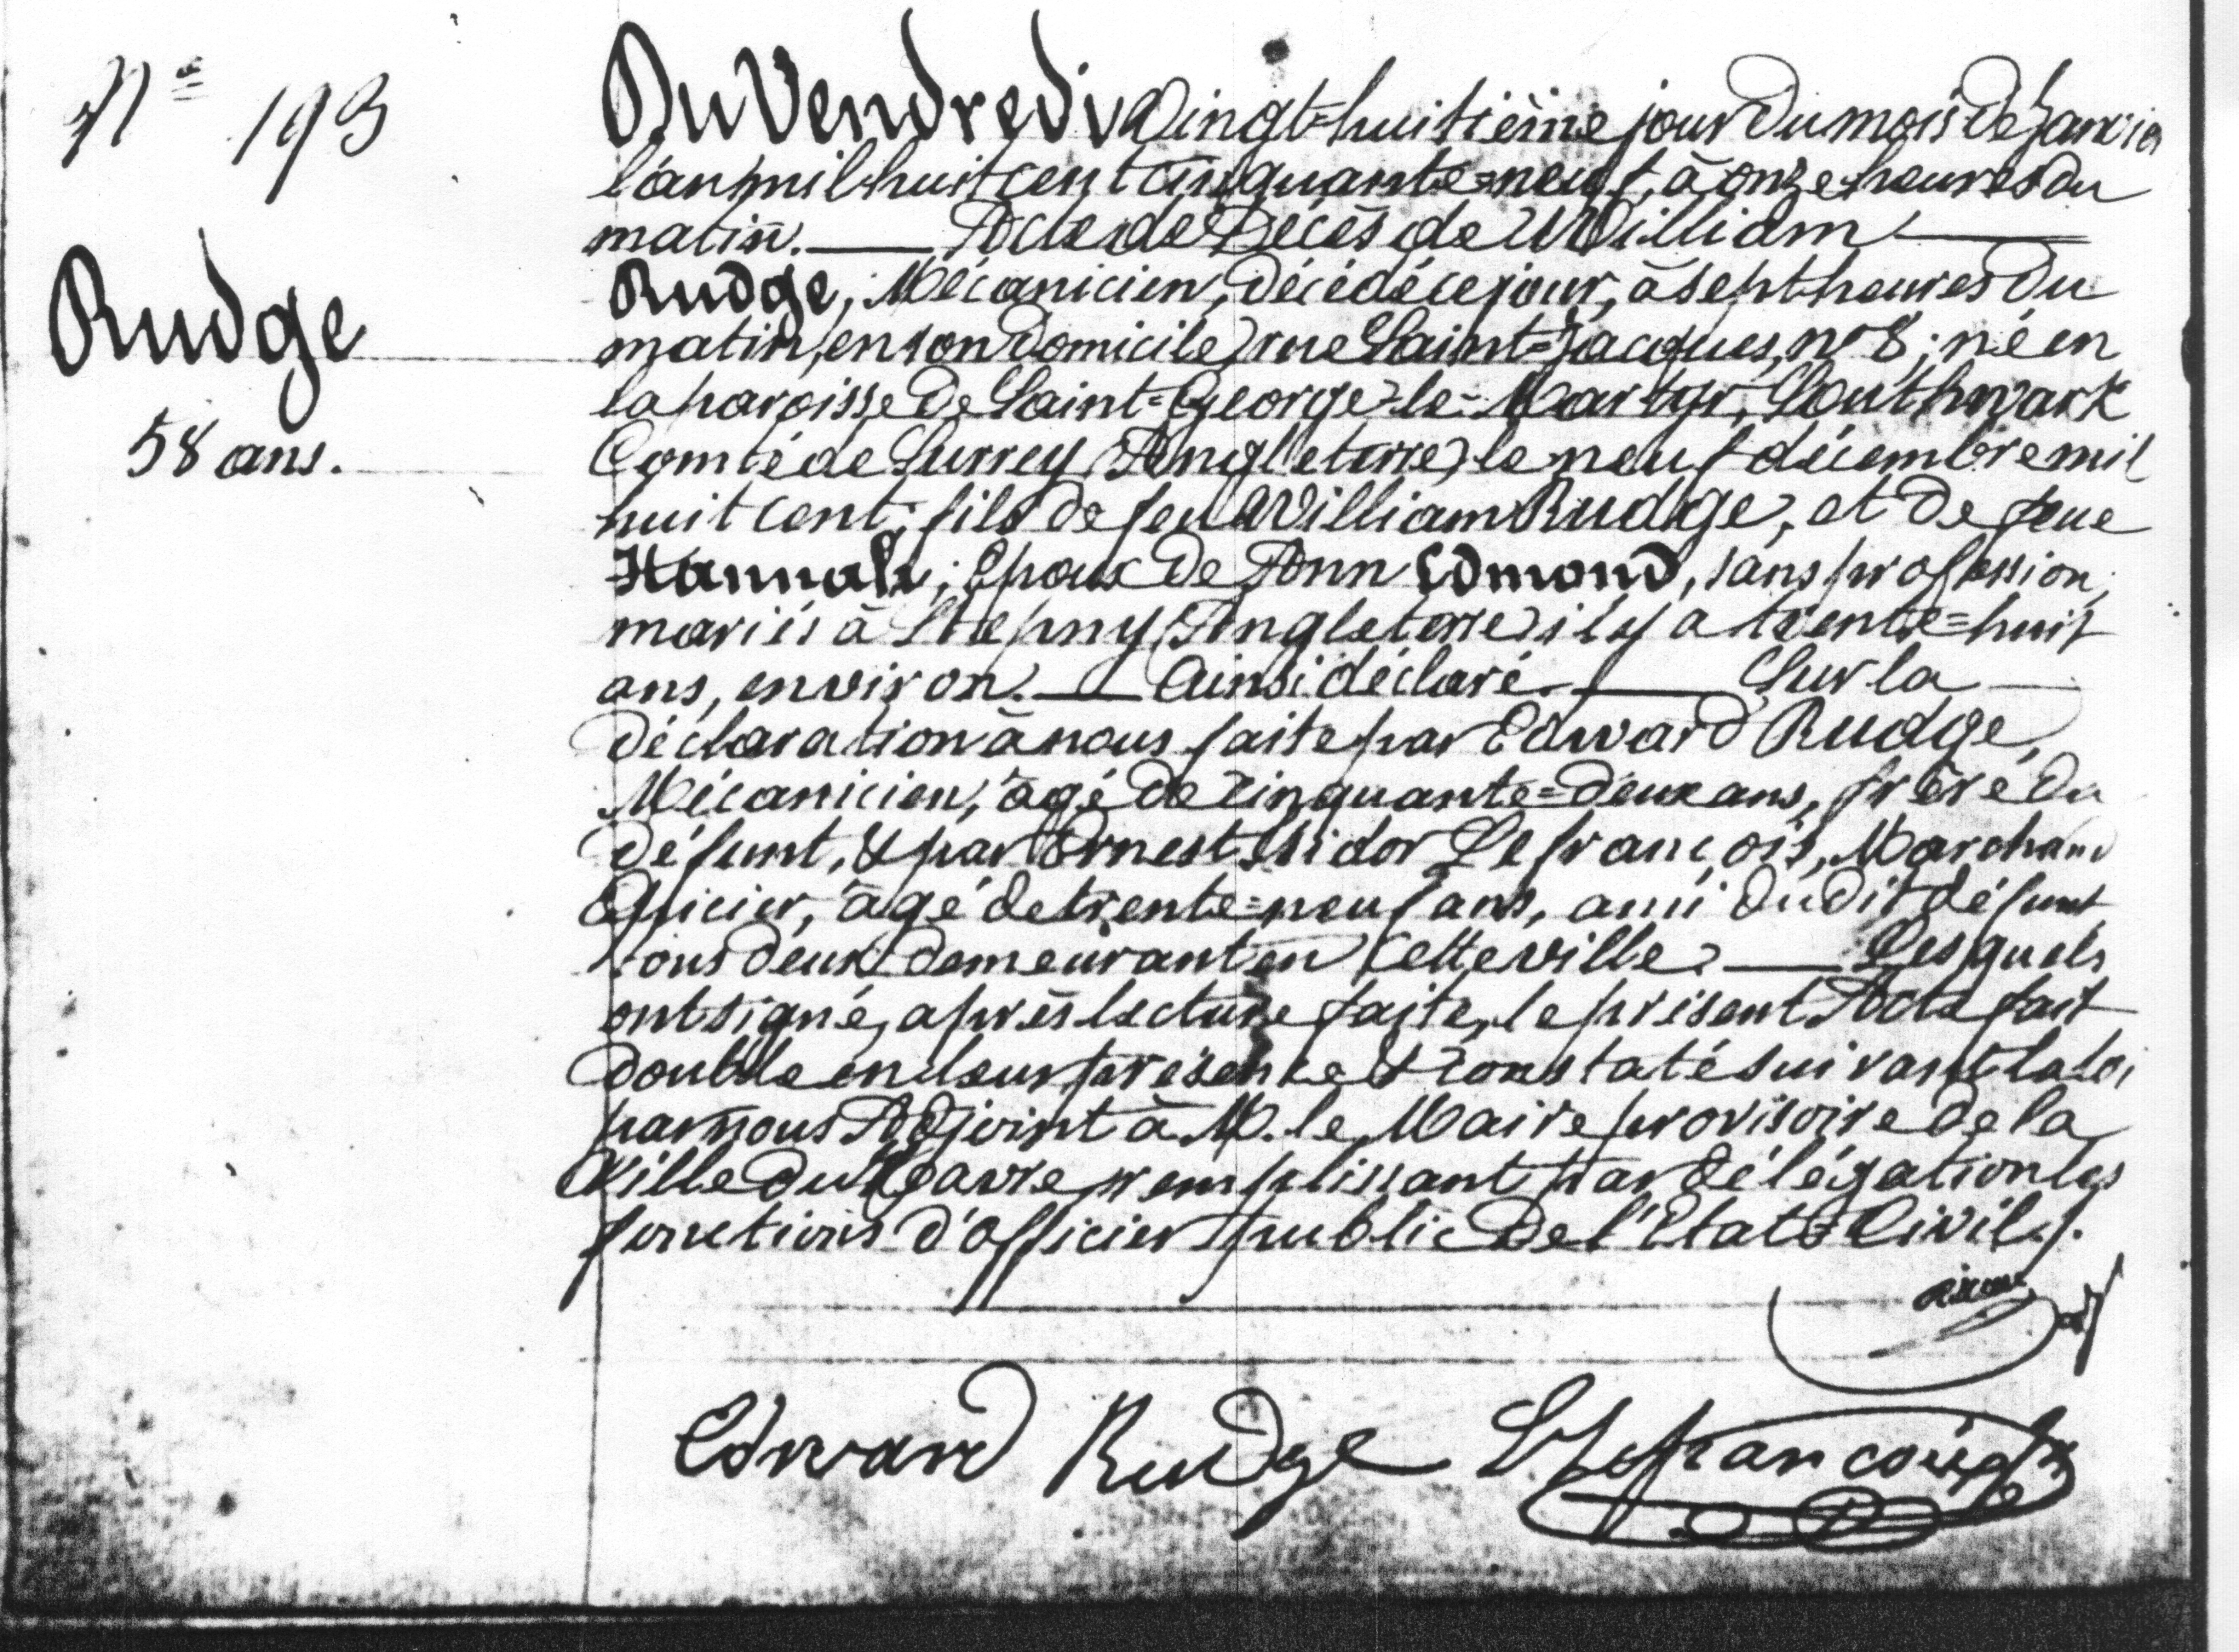 Nº 193
Rudge
58 ans.
Du Vendredi Vingt=huitième jour du mois de Janvier
l'an mil huit cent cinquante=neuf, à onze heures du
matin. — Acte de Décès de William —
Rudge, Mécanicien, décédé ce jour, à sept heures du
matin, en son domicile, rue Saint=Jacques, nº 8; né en
la paroisse de Saint=George=le=Martyr, Southwark
Comté de Surrey (Angleterre) le neuf décembre mil
huit cent; fils de feu William Rudge, et de feue
Hannah; Epoux de Ann Edmond, sans profession;
mariés à Stepny (Angleterre) il y a trente=huit
ans, environ. — Ainsi déclaré. — Sur la
déclaration à nous faite par Edward Rudge,
Mécanicien, âgé de cinquante=deux ans, frère du
défunt, & par Ernest Isidor Lefrançois, Marchand
Epicier, âgé de trente=neuf ans, ami dudit défunt
tous deux demeurant en cette ville — Lesquels
ont signé, après lecture faite, le présent Acte fait
double en leur présence & constaté suivant la loi
par nous Adjoint à M. le Maire provisoire de la
Ville du Havre, remplissant par délégation les
fonctions d'officier public de l'Etat=Civil.
Edward Rudge Lefrancois